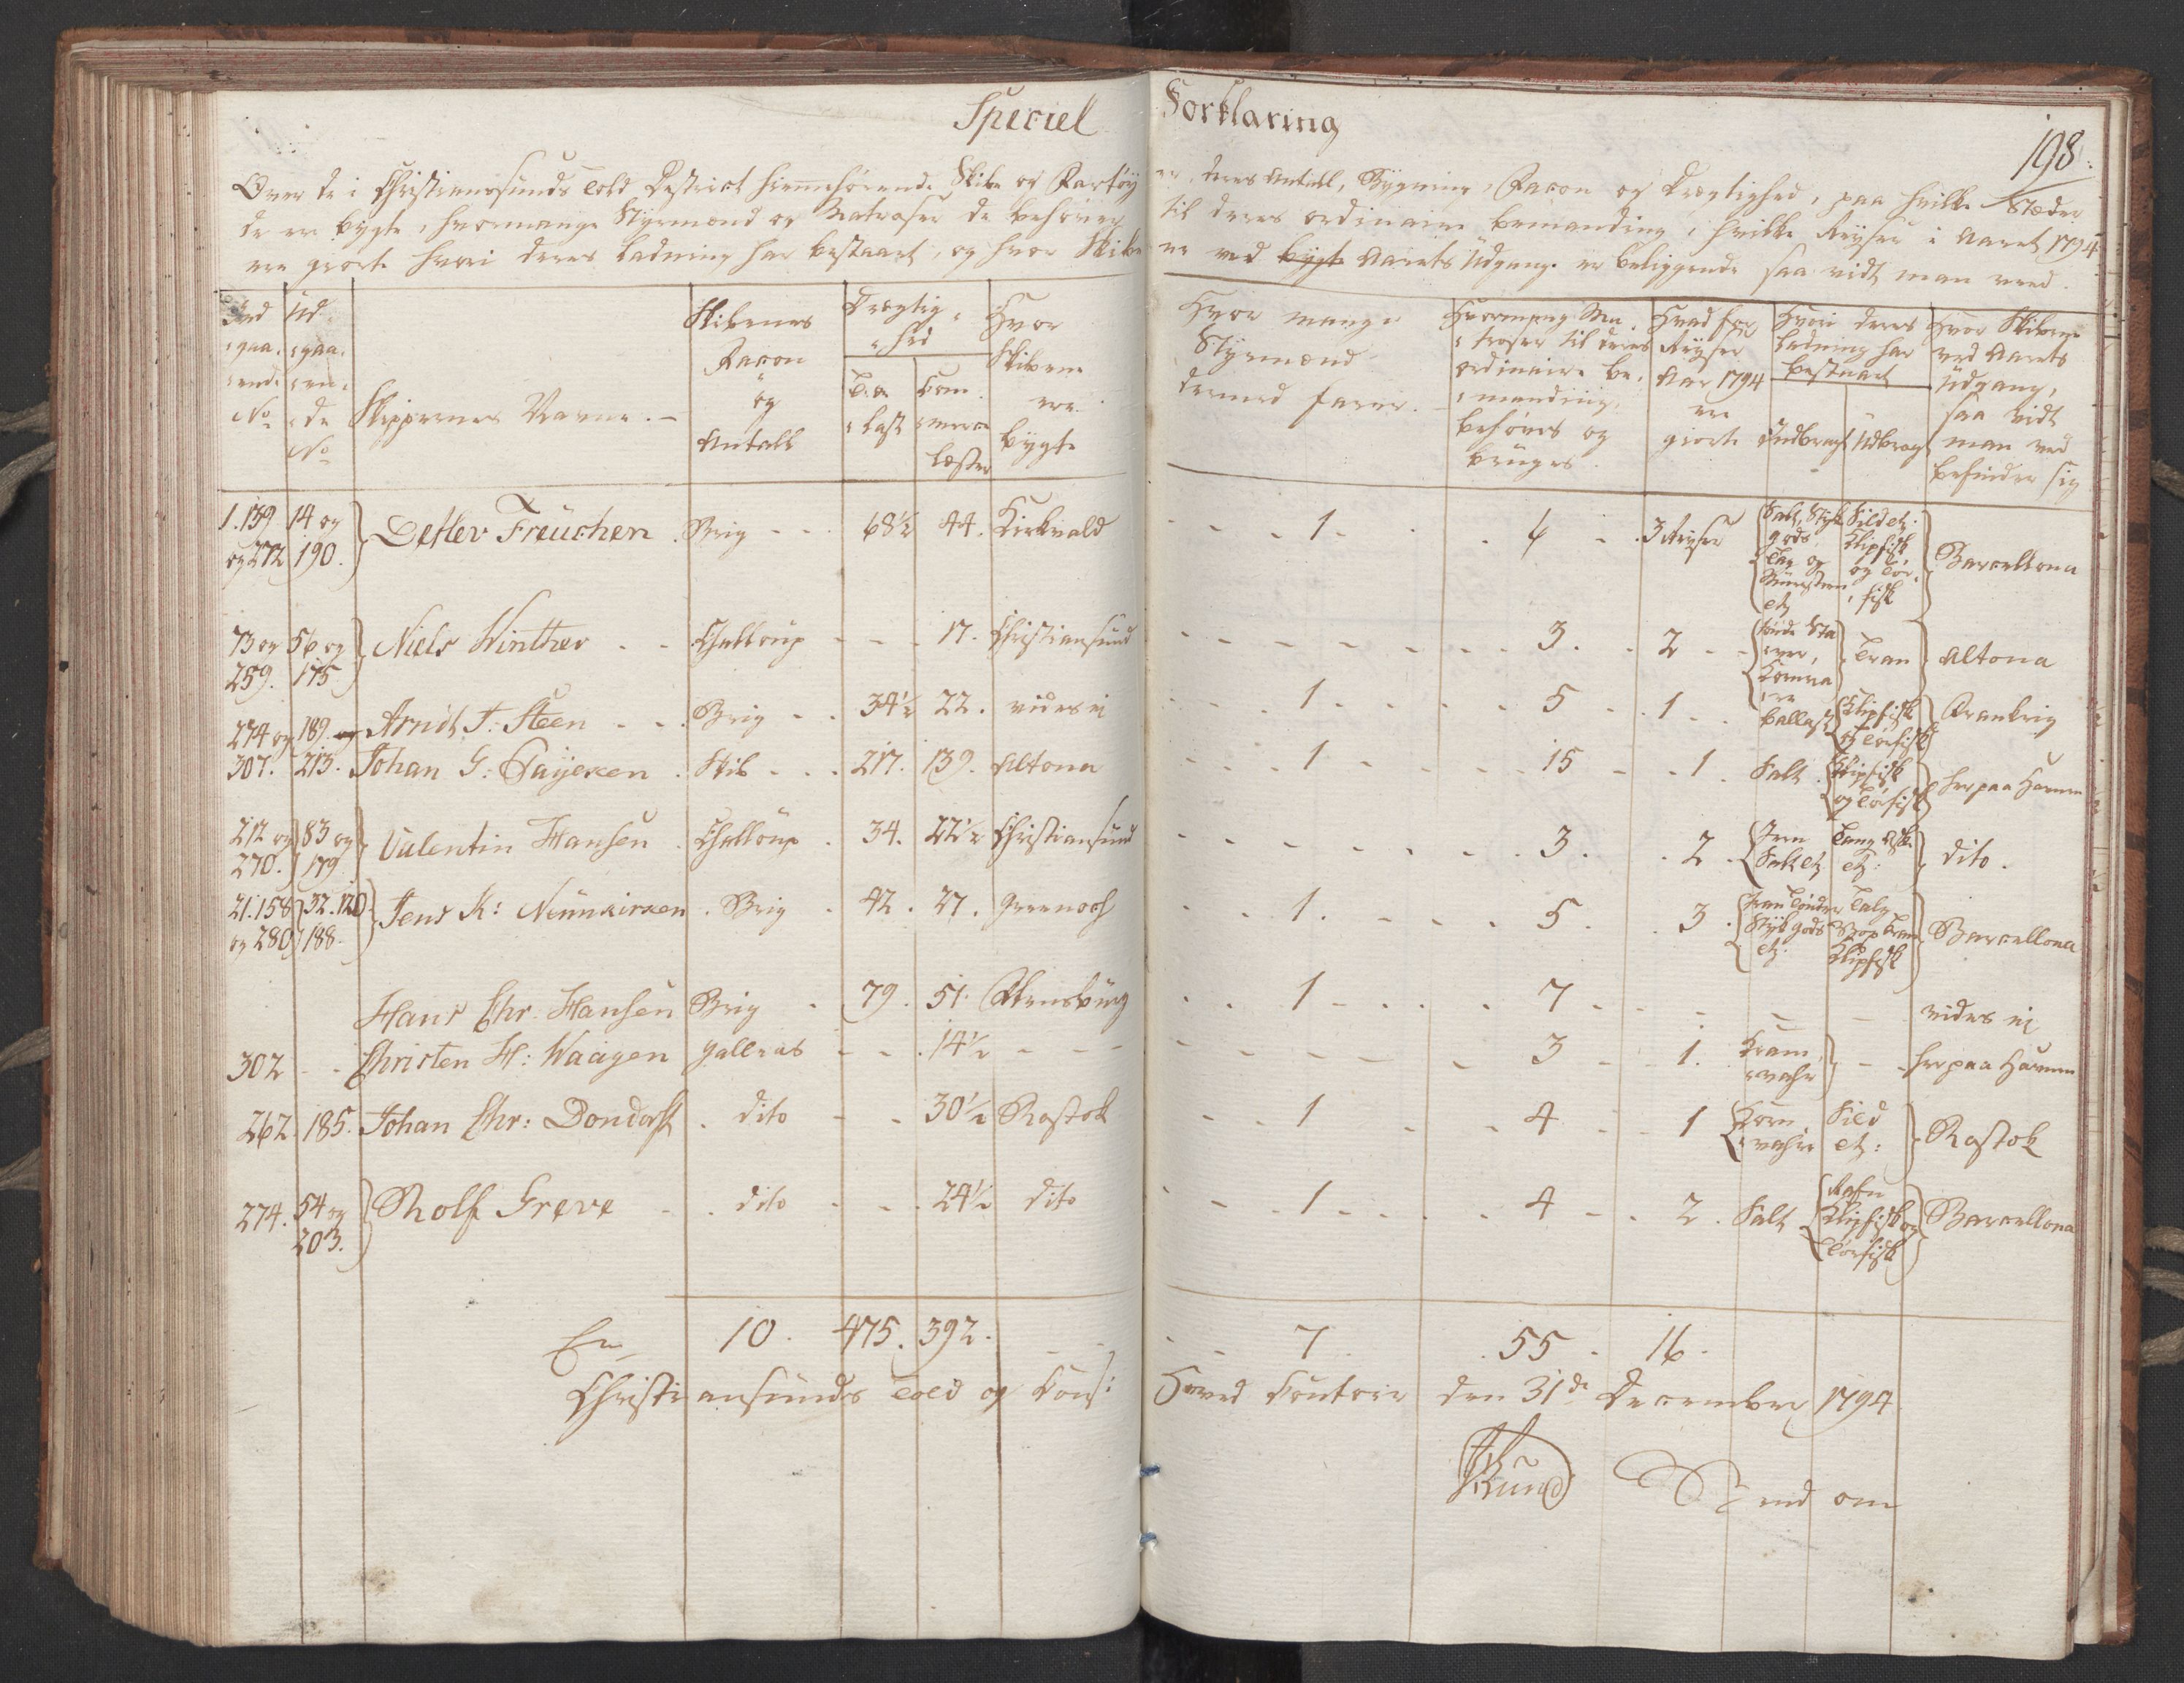 Speciel Forklaring
198.
Over de i Christiansunds Told District hiemhørende Skibe og Fartøyer, deres Antall, Bygning, Facon og Drægtighed, paa hvilke Stæder
de ere bygte, hvormange Styrmænd og Matroser de behøver til deres ordinaire bemanding, hvilke Reyser i Aaret 1794
ere giorte hvori deres Ladning har bestaaet, og hvor Skibene ved bygte Aarets Udgang er beliggende saa vidt man veed.
Ind gaa ende No | Ud gaa en de No | Skippernes Navne. | Skibenes Facon og Antall | Drægtig hed Træ Last | Com merce læster | Hvor Skibene ere bygte | Hvor mange Styrmænd dermed farer. | Hvormang Ma troser til deres ordinaire be manding behøves og bruges. | Hvad for Reyser Aar 1794 ere giorte | Hvori deres Ladning har bestaaet Indbragt | Udbragt | Hvor Skibene ved Aarets Udgang, saa vidt man ved befinder sig
1.139 og 272 | 14 og 190. | Detlev Freuchen | Brig | 68½ | 44. | Kirkvald | 1 | 6 | 3 Reyser | Salt, Styk gods etz | Sild etz: Klipfisk og Tør fisk | Barcellona
73 og 259. | 56 og 175 | Niels Winther | Challoup | - | 17. | Christiansund | - | 3. | 2 | | Tran | Altona
274 og 307. | 189. og 213. | Arndt J: Steen | Brig | 34½ | 22. | vides ei | 1 | 5 | 1 | Ballast | Klipfisk og Tørfisk | Frankrig
Johan G: | Skib | 217. | 139. | Altona | 1 | 15 | 1. | Salt | Klipfisk og Tørfisk | her paa Havnen
212 og 270. | 83 og 179 | Valentin Hansen | Challoup | 34. | 22½ | Christiansund | - | 3. | 2 | Jern Salt etz | etz: | dito.
21.158 og 280 | 32.120 188. | Jens K: Neünkirken | Brig | 42. | 27. | Greenoch | 1. | 5. | 3 | Tran Tønder Stykgods etz: | Talg Tran Klipfisk | Barcellona
Hans Chr. Hansen | Brig | 79. | 51. | Flensburg | 1 | 7 | - | - | - | vides ei
302 | - | Christen H: Waagen | Galleas | - | 14½ | - | - | 3 | 1. | Kram vahr | - | her paa Havnen
262. | 185. | Johan Chr: Dondorff | dito | - | 30½ | Rostok | 1 | 4 | 1 | Korn vahre | Sild etz: | Rostok
274. | 54 og 203. | Rolf Greve | dito | - | 24½ | dito | 1 | 4 | 2. | Salt | Rogn Klipfisk og Tørfisk | Barcellona
10. 475. 392. 7 55 16.
Christiansunds Told og Cons: Hoved Contoir den 31de December 1794
Vend om